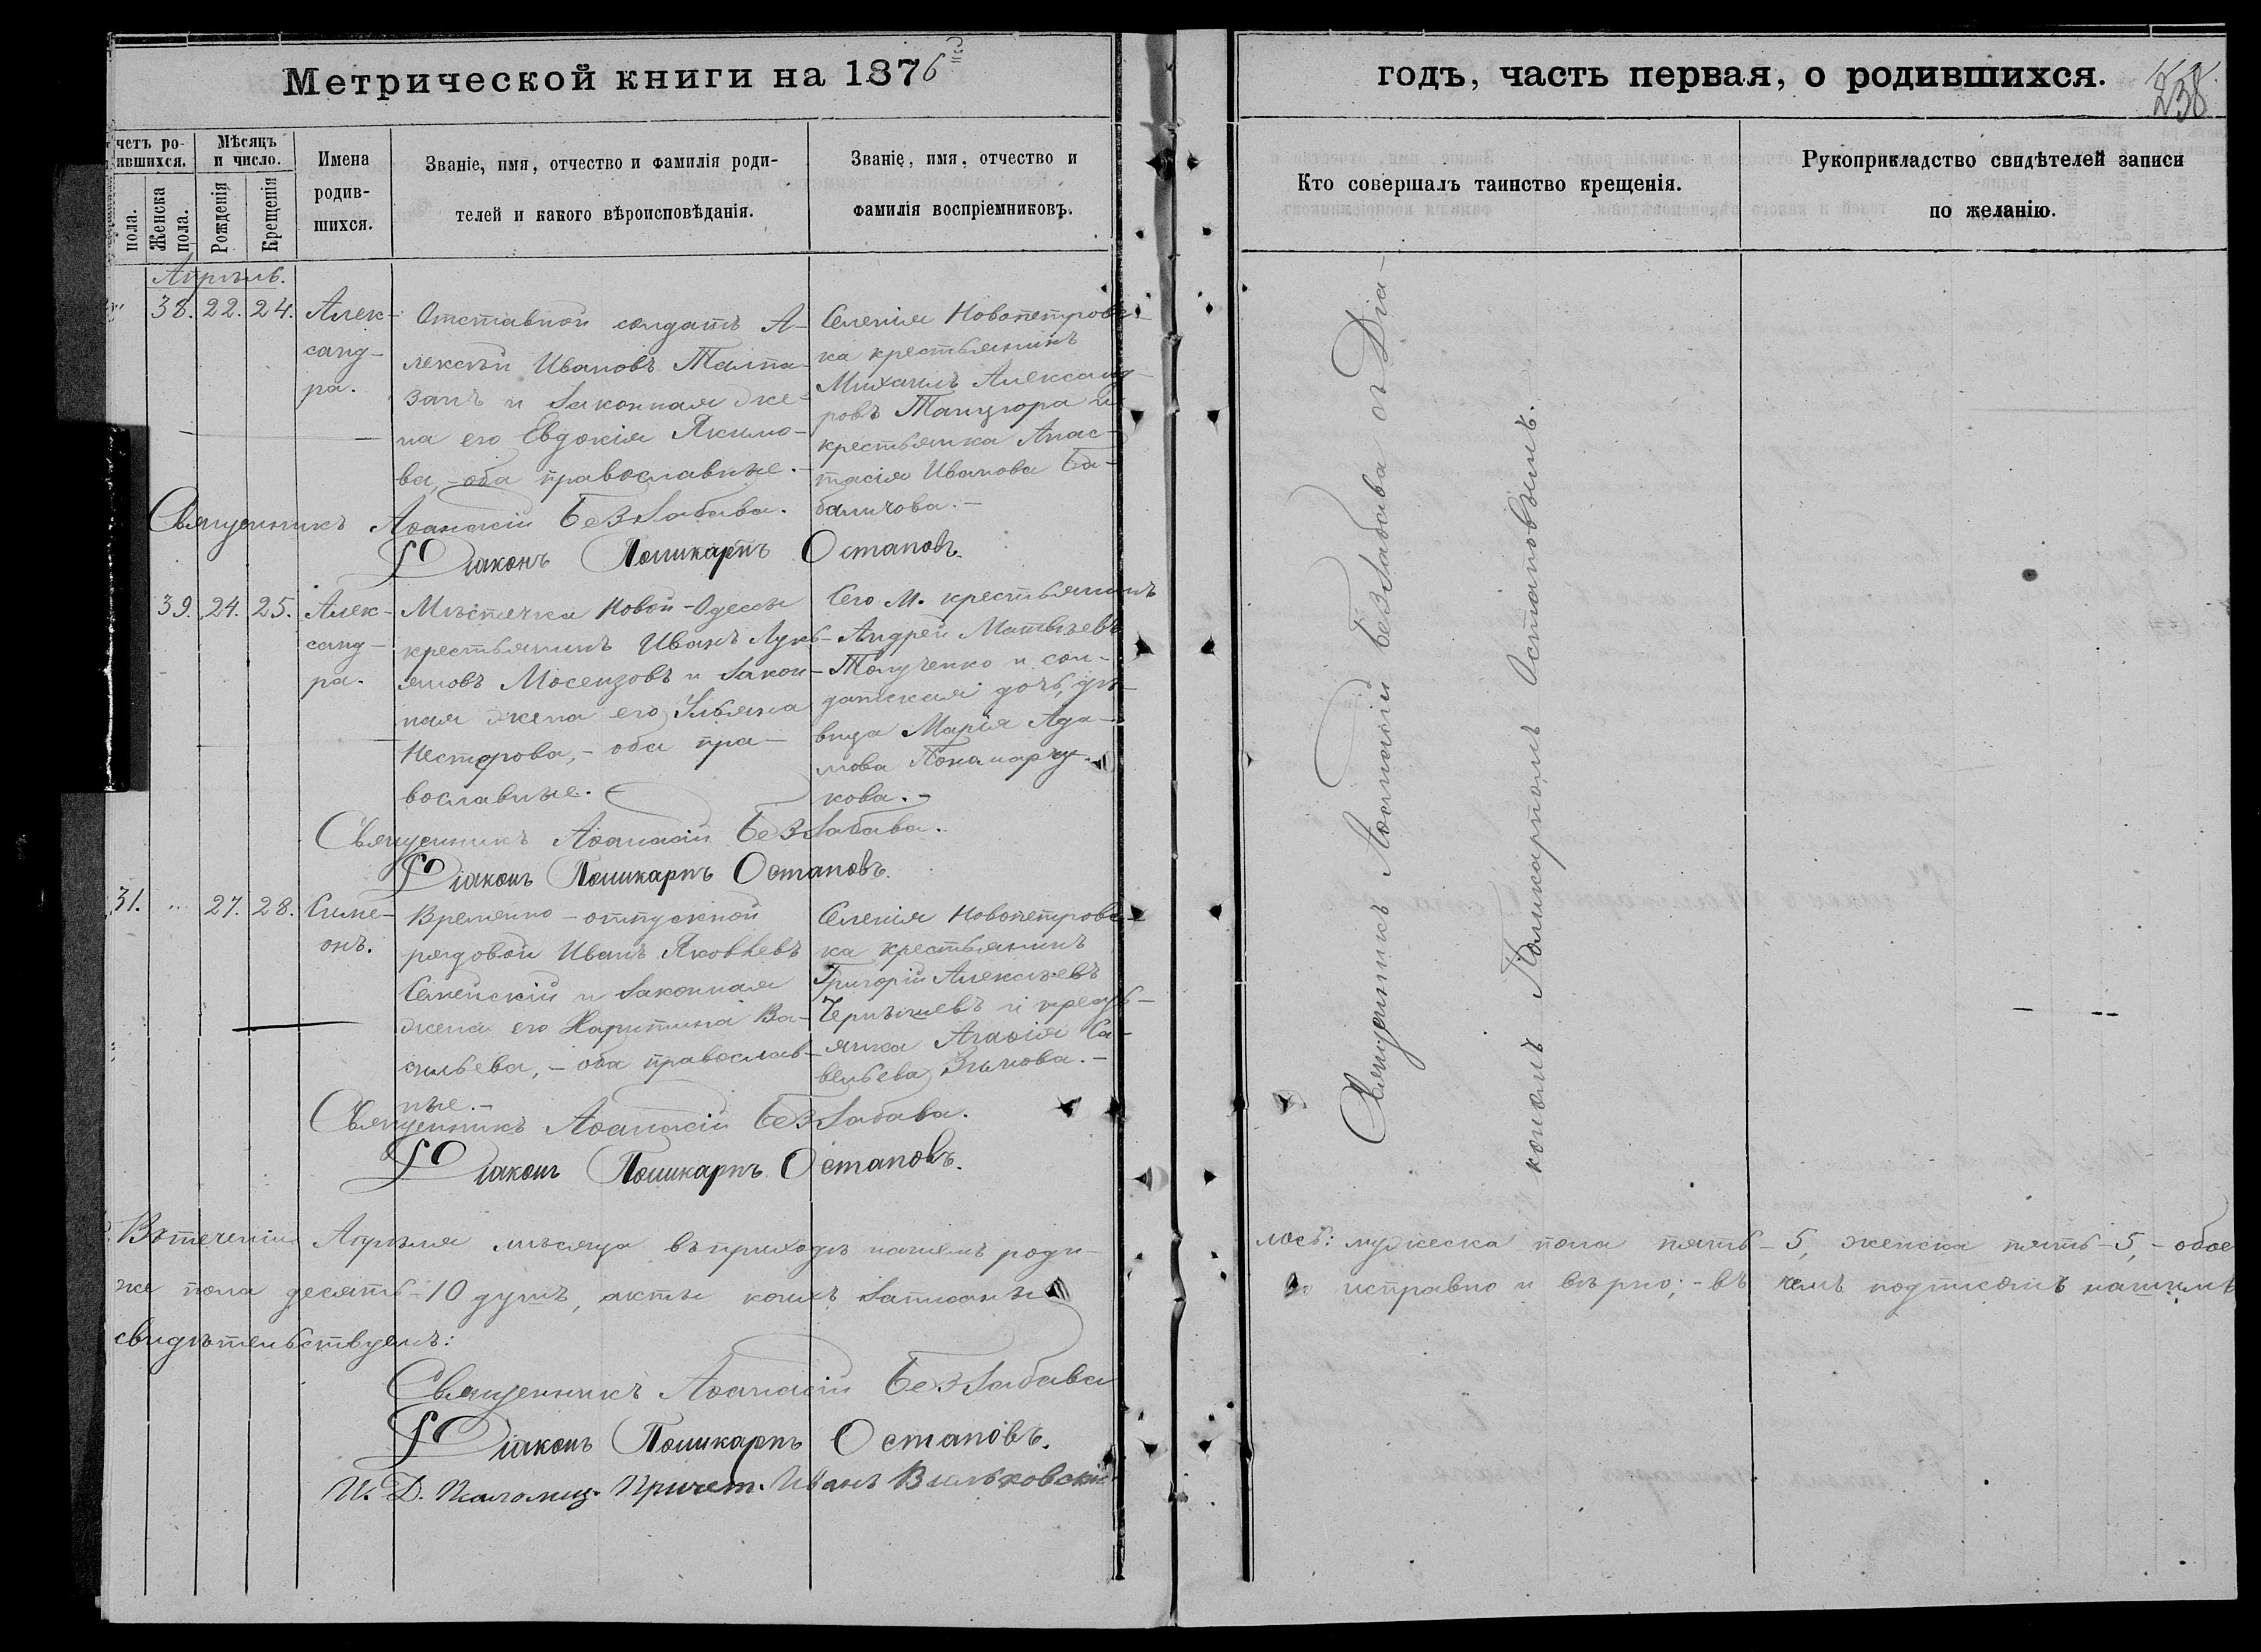 Метрической книги на 1876й
годъ, часть первая, о родившихся.
238.
четъ ро-
ившихся.
Мѣсяцъ
и число.
пола.
Женска
пола.
Рожденія
Крещенія
Имена
родив-
шихся.
Званіе, имя, отчество и фамилія роди-
телей и какого вѣроисповѣданія.
Званіе, имя, отчество и
фамилія воспріемниковъ.
Кто совершалъ таинство крещенія.
Рукоприкладство свидѣтелей записи
по желанію.
Апрѣль.
38. 22. 24.
Алек-
санд-
ра.
Отставной солдатъ А-
лексѣй Ивановъ Талпа-
занъ и законная же-
на его Евдокія Якимо-
ва, - оба православные. -
Селенія Новопетровс-
ка крестьянинъ
Михаилъ Александ-
ровъ Танцюра и
крестьянка Анас-
тасія Иванова Ба-
балихова. -
Священникъ Аѳанасій Беззабава.
Діаконъ Поликарпъ Остаповъ.
39. 24. 25.
Алек-
санд-
ра.
Мѣстечка Новой-Одессы
крестьянинъ Иванъ Лукь-
яновъ Мосенцовъ и закон-
ная жена его Ульяна
Нестерова, - оба пра-
вославные. -
Сего м. крестьянинъ
Андрей Матвѣевъ
Толученко и сол-
датская дочь, дѣ-
вица Марія Ада-
мова Понамарчу-
кова. -
Священникъ Аѳанасій Беззабава.
Діаконъ Поликарпъ Остаповъ.
31. " 27. 28.
Симе-
онъ.
Временно-отпускной
рядовой Иванъ Яковлевъ
Семенскій и законная
жена его Харитина Ва-
сильева, - оба православ-
ные. -
Селенія Новопетровс-
ка крестьянинъ
Григорій Алексѣевъ
Чернышевъ и кресть-
янка Агаѳія Са-
вельева Зыкова. -
Священникъ Аѳанасій Беззабава.
Діаконъ Поликарпъ Остаповъ.
Священникъ Аѳанасій Беззабава съ Діа-
кономъ Поликарпомъ Остаповымъ.
Втеченіи Апрѣля мѣсяца въ приходѣ нашемъ роди-
лось: мужеска пола пять - 5, женска пять - 5, - обое
же пола десять - 10 душъ, акты коихъ записаны
исправно и вѣрно; - въ чемъ подписомъ нашимъ
свидѣтельствуемъ:
Священникъ Аѳанасій Беззабава
Діаконъ Поликарпъ Остаповъ.
И. Д. Псаломщ. Причет. Иванъ Вильховскій